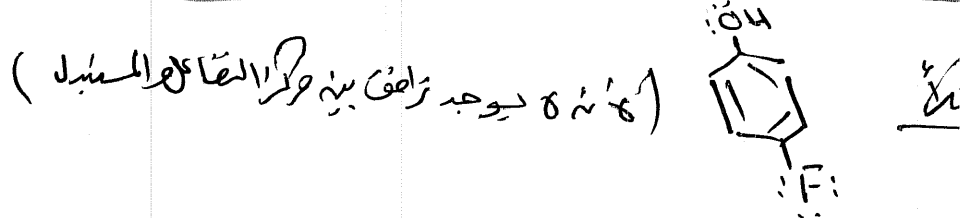 :ÖH
مثلاً
(لأنه لا يوجد ترافق بين مركز التفاعل والمستبدل)
:F: